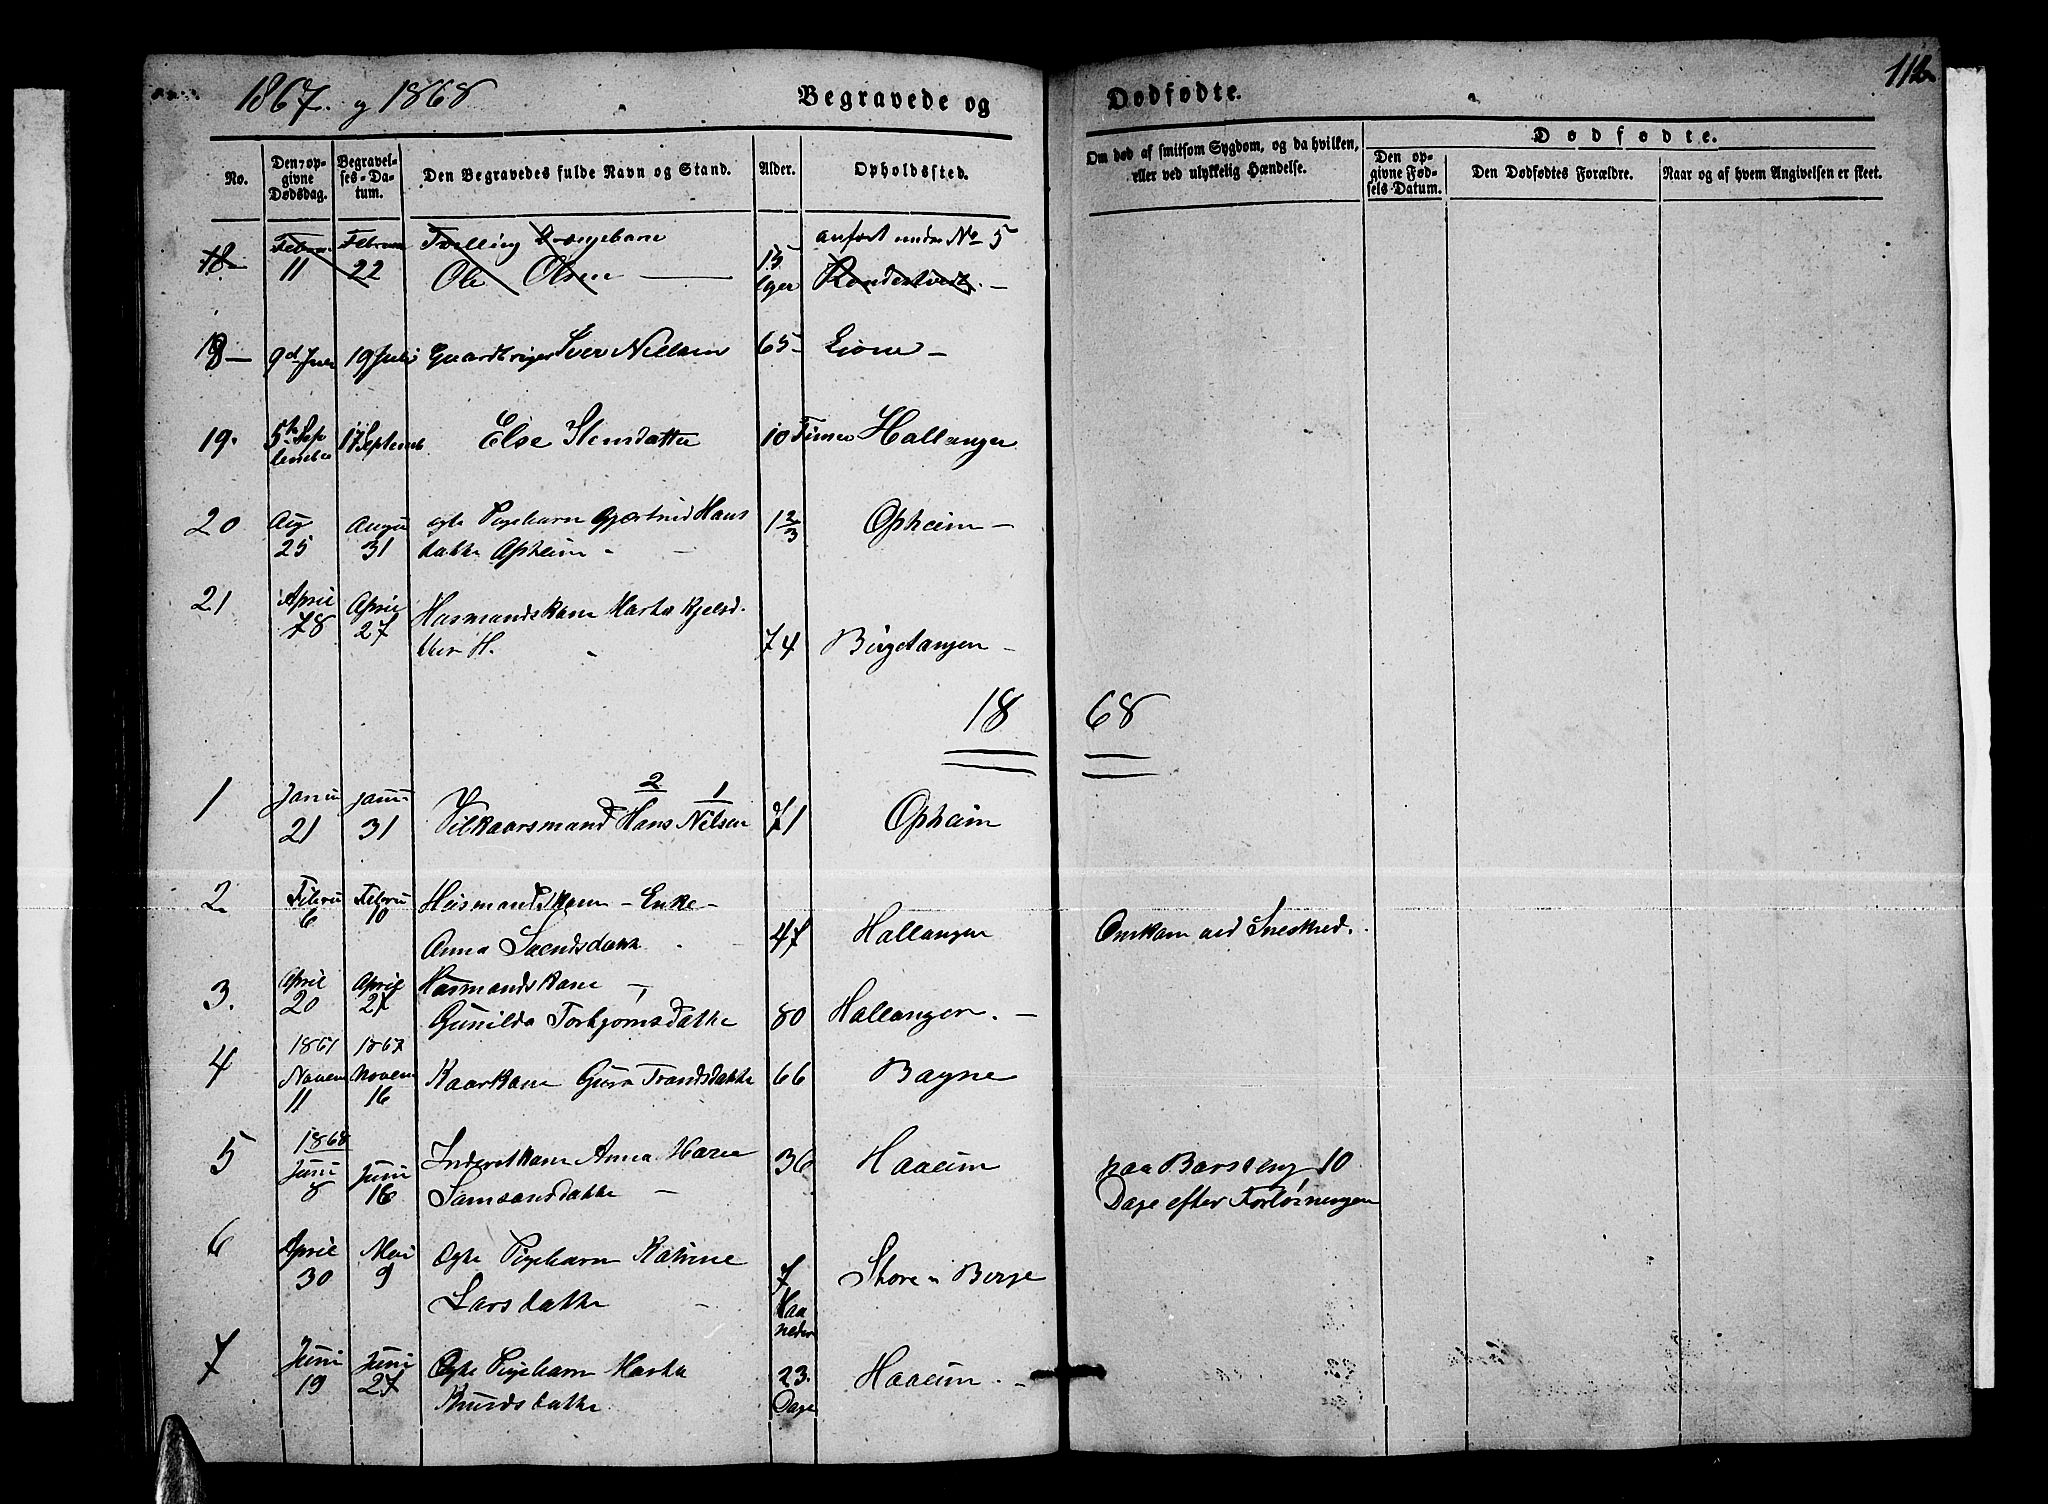 1867 og 1868
Begravede og
Dødfødte.
112
No.
Den opgivne Dødsdag.
Begravelses-Datum.
Den Begravedes fulde Navn og Stand.
Alder.
Opholdssted.
Om død af smitsom Sygdom, og da hvilken, eller ved ulykkelig Hændelse.
Dødfødte.
Den opgivne Fødsels-Datum.
Den Dødfødtes Forældre.
Naar og af hvem Angivelsen er skeet.
18 Februar Februar Tvilling Drængebarn anført under No 5
11 22 Ole Olsen 15 Uger
19 9d Juli 19 Juli Iver Nielsen 65
19. 5te September 17 September Else Stensdatter 10 Timer Hallanger
20 Aug 25 Augu 31 ægte Pigebarn Gjertrud Hans
datter Opheim 1 2/3 Opheim
21 April 28 April 27 Huusmandskone Marta Kjelsd.
74
18 68
1 Janu 21 Janu 31 Vilkaarsmand Hans Nilsen 71 Opheim
2 1
2 Febru 6 Febru 10 Huusmandskone - Enke -
Anna Svendsdatter 47 Hallanger Omkom ved Sneskred.
3. April 20 April 27 Huusmandskone
Gunilda Torbjørnsdatter 80 Hallanger.
4 1867 Novem 11 1867 Novem 16 Kaarkone Guro Trondsdatter 66 Bagne
5 1868 Juni 8 Juni 16 Inderstkone Anna Marie
Samsonsdatter 36 Haaeim paa Barseng 10
Dage efter Forløsningen
6 April 30 Mai 9 Ægte Pigebarn Katrine
Larsdatter 7 Maaneder Store Berge
7 Juni 19 Juni 27 Ægte Pigebarn Marta
Knudsdatter 23. Dage Haaeim.